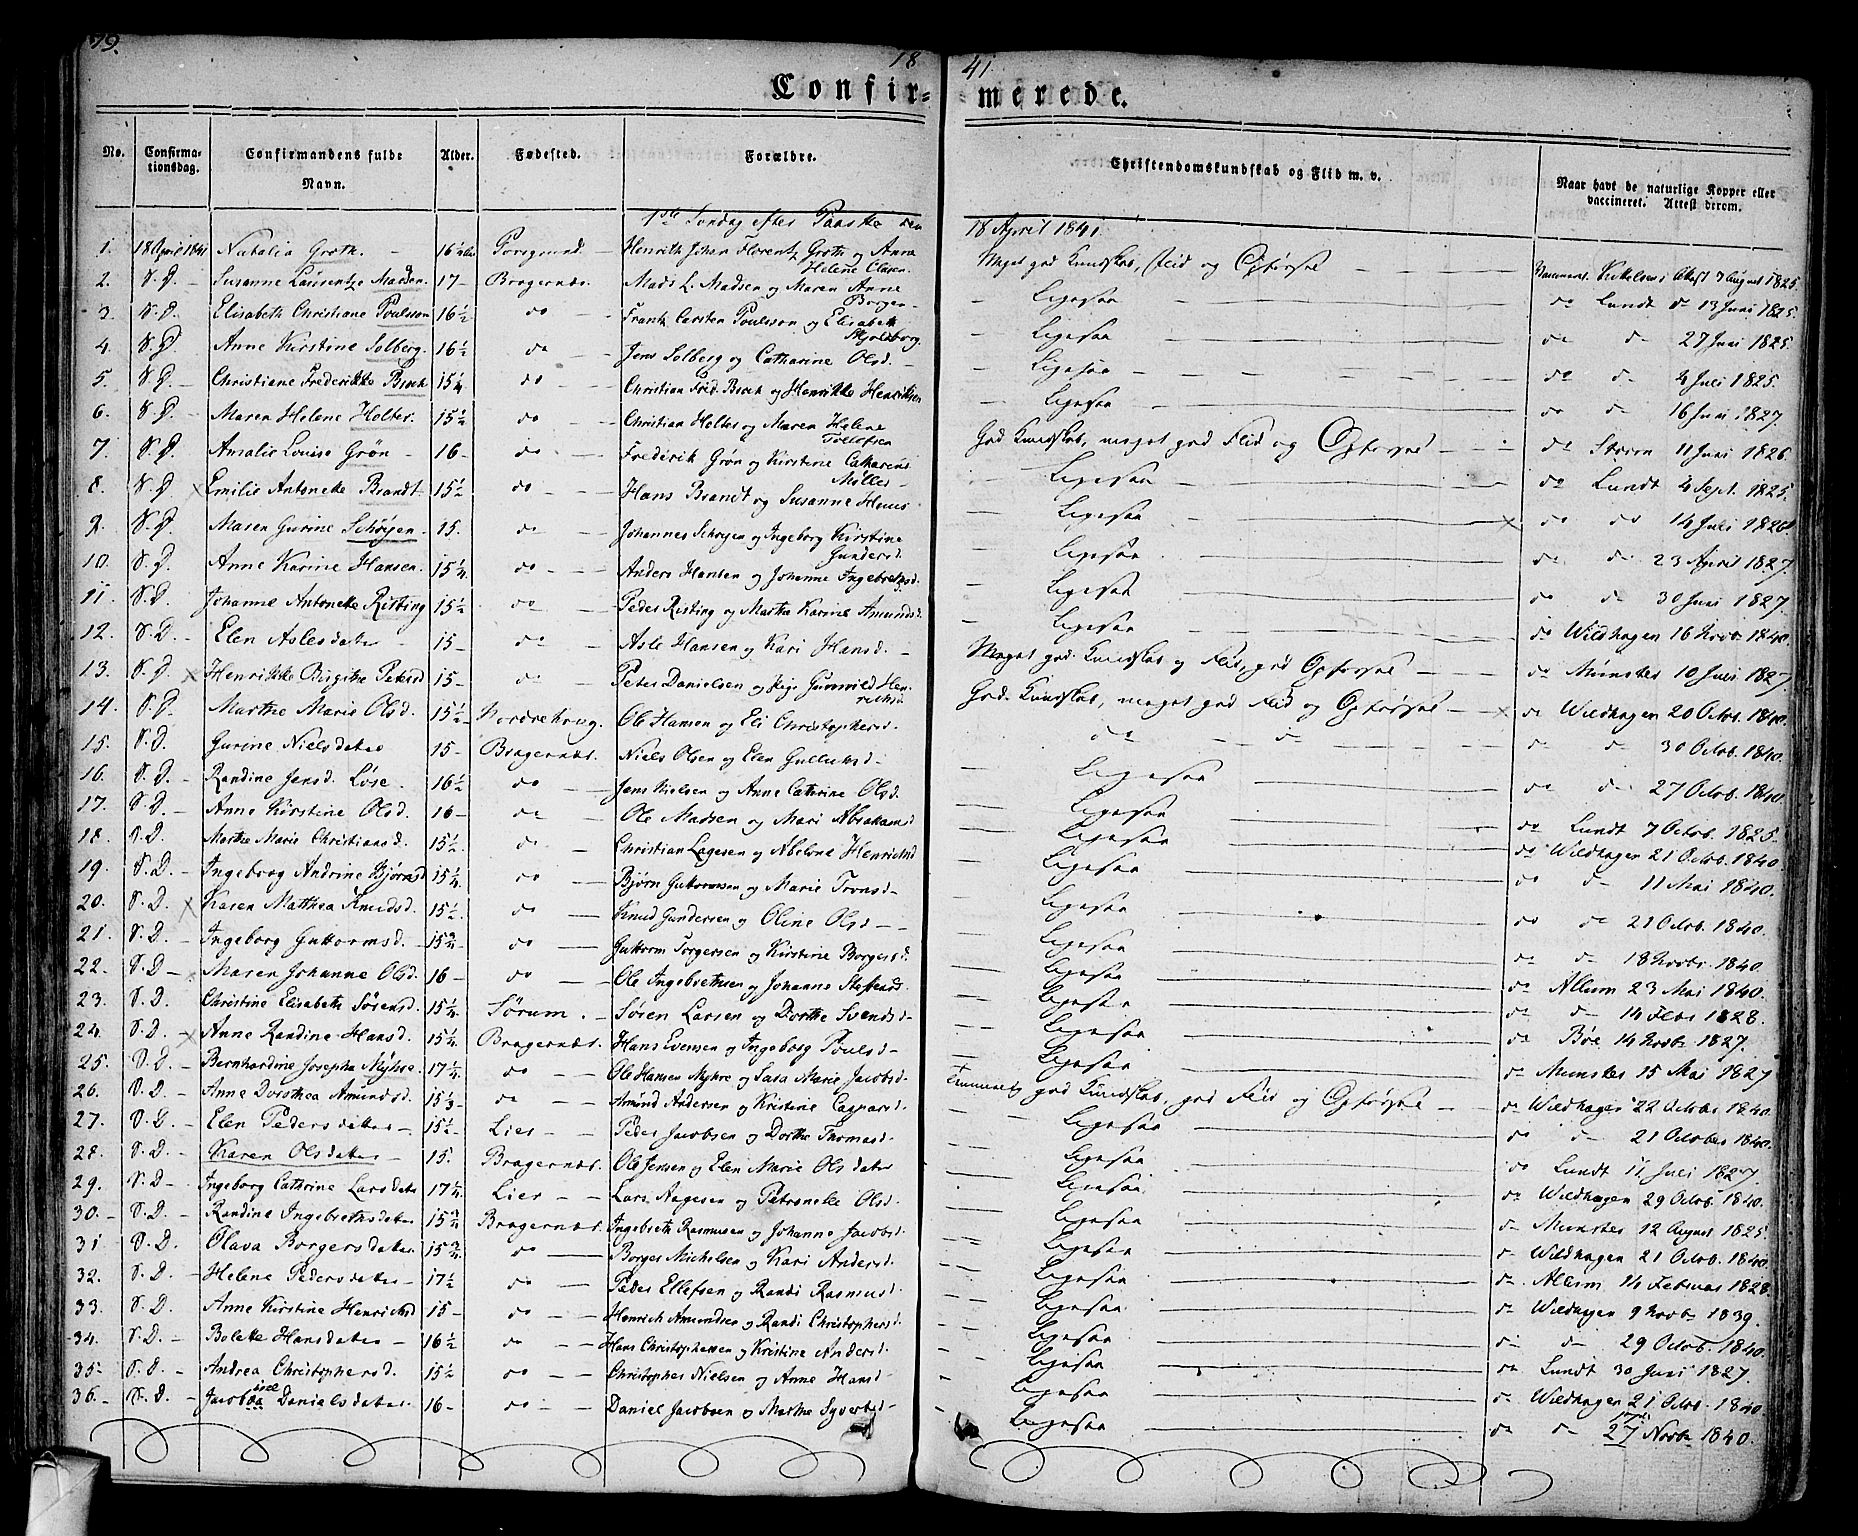 79.
18 41.
Confir- merede.
No. Confirmationsdag. Confirmandens fulde Navn. Alder. Fødested. Forældre. Christendomskundskab og Flid m. v. Naar havt de naturlige Kopper eller vaccineret. Attest derom.
1ste Søndag efter Paaske den 18 April 1841.
1. 18 April 1841 Natalia Groth. 16½ Henrich Johan Florentz Groth og Anne Helene Clasen Meget god Kundskab, Flid og Opførsel Attest 3 August 1825.
2. S. D. Susanne Laurentze Madsen 17 Bragernæs. Mads L. Madsen og Maren Anne Borgen Ligesaa do Lundt do 13 Juni 1825.
3. S. D. Elisabeth Christiane Poulsson 16½ do Frantz Carsten Poulsson og Elisabeth Ligesaa do do 27 Juni 1825.
4. S. D. Anne Kirstine Solberg. 16½ do Jens Solberg og Catharine Olsd. Ligesaa do do 4 Juli 1825.
5. S. D. Christiane Frederikke Bech 15¼ do Christian Fred. Bech og Henrikke Henriksen Ligesaa do do 16 Juni 1827.
6. S. D. Maren Helene Holter. 15½ do Christian Holter og Maren Helene Tollofsen God Kundskab, meget god Flid og Opførsel do Storm 11 Juni 1826.
7. S. D. Amalie Louise Grøn 16 do Frederik Grøn og Kirstine Catharine Møller Ligesaa do Lundt 4 Sept. 1825.
8. S. D. Emilie Antonette Brandt 15½ do Hans Brandt og Susanne Ligesaa do do 14 Juli 1826.
9. S. D. Maren Gurine Schøyen 15. do Johannes Schøyen og Ingeborg Kirstine Gundersd. Ligesaa do do 23 April 1827.
10. S. D. Anne Karine Hansen. 15¼ do Anders Hansen og Johanne Ingebretsd. Ligesaa do do 30 Juni 1827.
11. S. D. Johanne Antonette Risting 15½ do Peder Risting og Marthe Karine Amundsd. Ligesaa do Wildhagen 16 Novb 1840.
12. S. D. Elen Aslesdater 15 do Asle Hansen og Kari Hansd. Meget god Kundskab og Flid, god Opførsel do Münster 10 Juli 1827.
13. S. D. Henrikke Birgitte Petersd 15 do Peter Danielsen og Gunnild God Kundskab, meget god Flid og Opførsel do Wildhagen 20 Octob. 1840.
14. S. D. Marthe Marie Olsd. 15½ Nordrehoug. Ole Hansen og Eli Christophersd. do do do do 30 Octob. 1840.
15. S. D. Gurine Nielsdater 15 Bragernæs. Niels Olsen og Elen Gulliksd. Ligesaa do do 27 Octob. 1840.
16. S. D. Randine Jensd. Løse. 16½ do Jens Nielsen og Anne Cathrine Olsd. Ligesaa do Lundt 7 Octob. 1825.
17. S. D. Anne Kirstine Olsd. 16 do Ole Madsen og Mari Abrahamsd Ligesaa do Wildhagen 21 Octob. 1840.
18. S. D. Marthe Marie Christiansd. 15½ do Christian Lagesen og Abelone Henriksd Ligesaa do do 11 Mai 1840.
19. S. D. Ingeborg Andrine Bjørnsd 15¼ do Bjørn Guttormsen og Marie Tronsd Ligesaa do do 21 Octob. 1840.
20. S. D. Karen Matthea Knudsd. 15½ do Knud Gundersen og Oline Olsd Ligesaa do do 18 Novbr 1840.
21. S. D. Ingeborg Guttormsd. 15¾ do Guttorm Torgersen og Kirstine Borgersd. Ligesaa do Allum 23 Mai 1840.
22. S. D. Maren Johanne Olsd. 16 do Ole Ingebrethsen og Johanne Steffensd. Ligesaa do do 14 Febr 1828.
23. S. D. Christine Elisabeth Sørensd. 15¼ Sørum. Søren Larsen og Dorthe Svendsd Ligesaa do Bøe 14 Novbr 1827.
24. S. D. Anne Randine Hansd. 15¼ Bragernæs. Hans Evensen og Ingeborg Poulsd Ligesaa do Munster 15 Mai 1827
25. S. D. Bernhardine Josepha Myhre. 17¼ do Ole Hansen Myhre og Sara Marie Jacobsd Temmelig god Kundskab, god Flid og Opførsel do Wildhagen 22 Octobr 1840.
26. S. D. Anne Dorothea Amundsd. 15½ do Amund Andersen og Kristine Caspersd. Ligesaa do do 21 October 1840.
27. S. D. Elen Pedersdater 15½ Lier Peder Jacobsen og Dorthe Thomasd. Ligesaa do Lundt 11 Juli 1827.
28. S. D. Karen Olsdater 15. Bragernæs. Ole Jensen og Elen Marie Olsdater Ligesaa do Wildhagen 29 Octob. 1840.
29. S. D. Ingeborg Cathrine Larsdater 17¼ Lier Lars Aagesen og Petronelle Olsd. Ligesaa do Munster 12 August 1825.
30. S. D. Randine Ingebrethsdater 15¾ Bragernæs. Ingebreth Rasmusen og Johanne Jacobsd. Ligesaa do Wildhagen 21 Octob. 1840.
31 S. D. Olava Borgersdater 15¾ do Borger Michelsen og Kari Andersd. Ligesaa do Allum 14 Februar 1828.
32. S. D. Helene Pedersdater 17½ do Peder Ellefsen og Randi Rasmusd. Ligesaa do Wildhagen 9 Novbr 1839.
33. S. D. Anne Kirstine Henrichsd 15 do Henrich Amundsen og Randi Christophersd. Ligesaa do do 29 Octob. 1840.
34. S. D. Bolette Hansdater 16½ do Hans Christophersen og Kristine Andersd. Ligesaa do Lundt 30 Juni 1827.
35. S. D. Andrea Christophersd. 15½ do Christopher Nielsen og Anne Hansd Ligesaa do Wildhagen 21 Octob. 1840.
36. S. D. Danielsdater 16 do Daniel Jacobsen og Marthe Syversd Ligesaa do do 27 Novbr 1840.